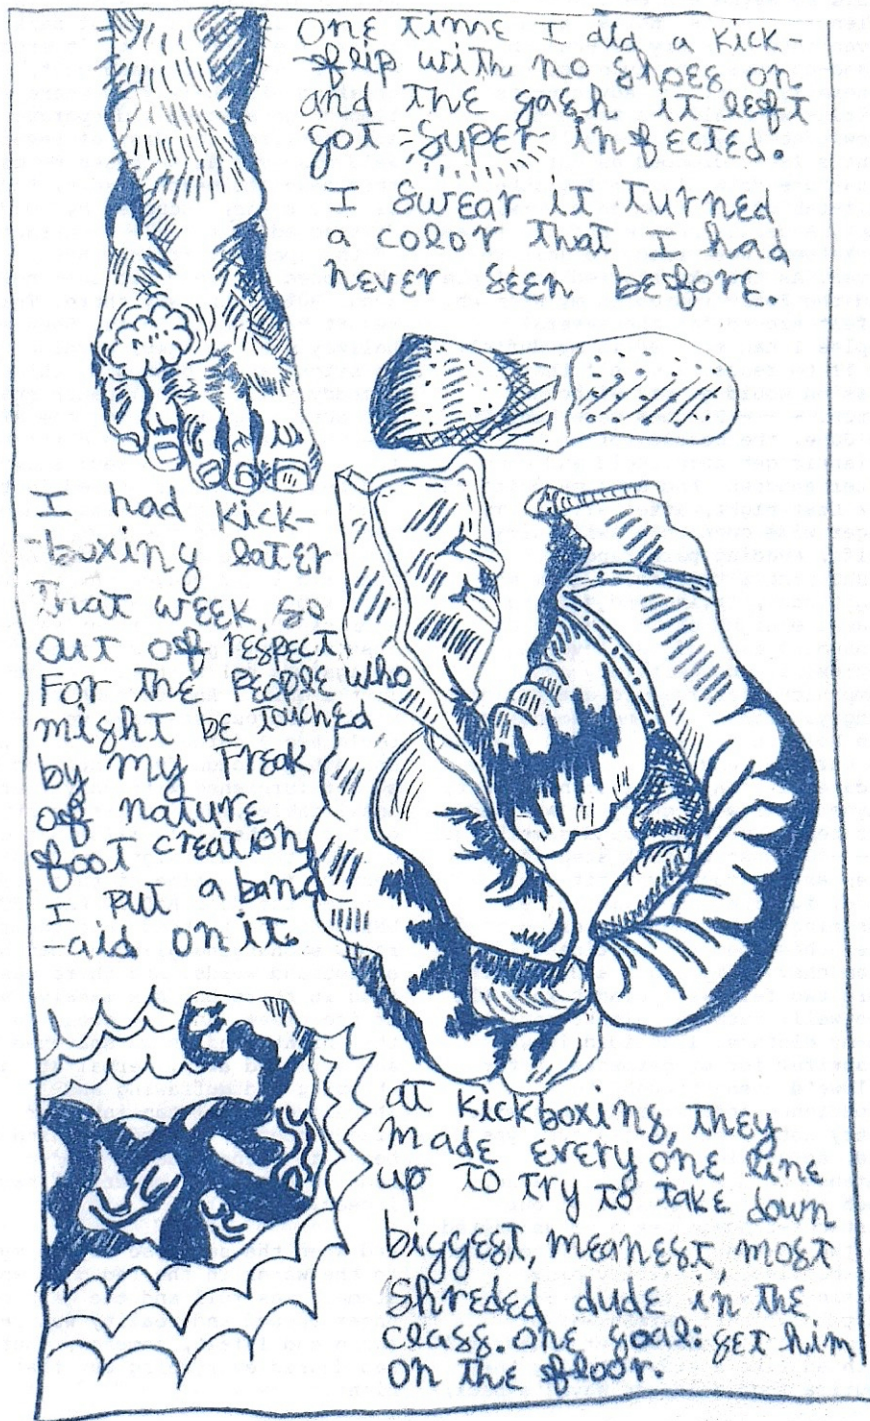 One time I did a kick-
flip with no shoes on
and the gash it left
got super infected.
I swear it turned
a color that I had
never seen before.
I had kick-
-boxing later
that week, so
out of respect
For the people who
might be touched
by my freak
of nature
foot creation,
I put a band
-aid on it.
at kickboxing, they
made every one line
up to try to take down
biggest, meanest, most
shreded dude in the
class. One goal: get him
on the floor.